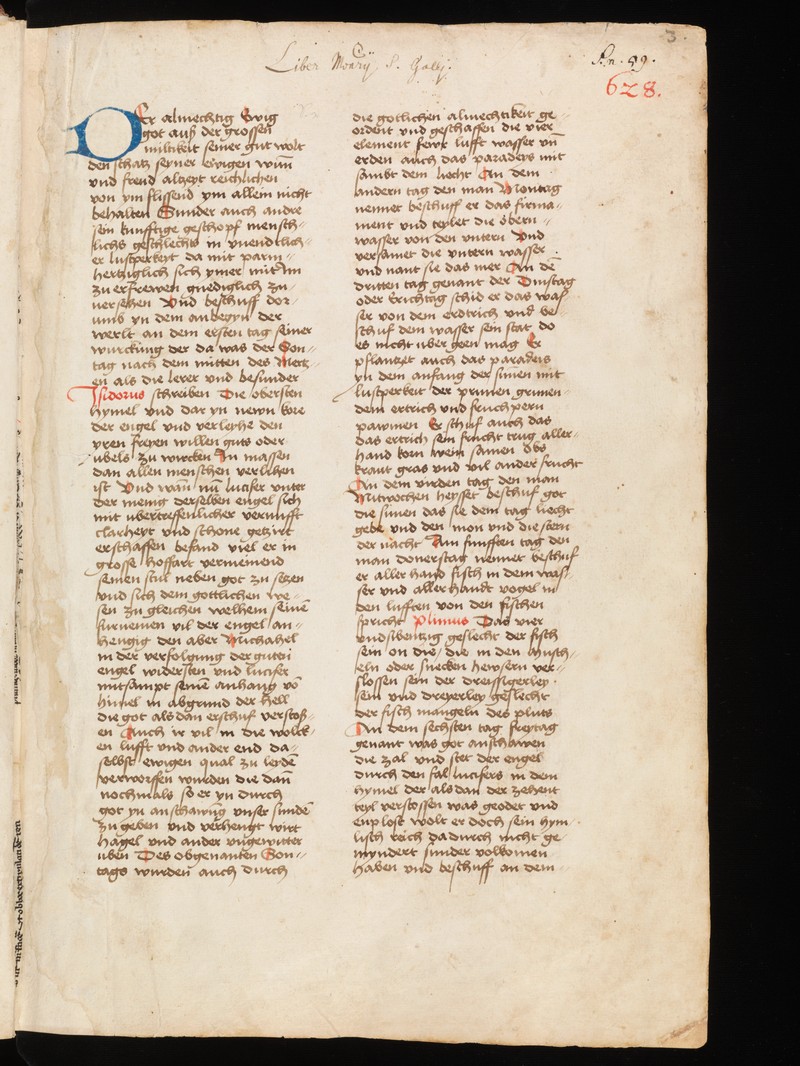 Liber Mon̄rij S. Galli.
S. n. 89.
628.
3.
Der almechtig Ewig
got auß der grossen
miltikeit seiner gut wolt
den schatz seyner ewigen wunn
vnd freud alzeyt reichlichen
von ym flissend ym allein nicht
behalten Sunder auch andre
sein kunfftige geschopf mensch-
lichs geschlechts in vnendtlich-
er lustperkeyt da mit parm-
hertziglich sich ymer mit im
zu erfrewen gnediglich zu-
versehen Vnd beschuff dor-
umb yn dem anbegyn der
werlt an dem ersten tag seiner
wurckung der da was der Son-
tag nach dem mitten des Mertz-
en als die lerer vnd besunder
Isidorus schreiben Die obersten
hymel vnd dar yn newn kore
der engel vnd verleyhe den
yren freyen willen guts oder
ubels zu wircken In massen
dan allen menschen verlihen
ist Vnd wan̄ nu lucifer vnter
der menig derselben engel sich
mit ubertreffenlicher vernufft
clarheyt vnd schone getzirt
erschaffen befand viel er in
grosse hoffart vermeinend
seinen stul neben got zu setzen
vnd sich dem gottlichen we-
sen zu gleichen welhem seinē
furnemen vil der engel an-
hengig den aber Michahel
in der verfolgung der guten
engel widersten vnd lucifer
mitsampt seinē anhang vō
himel in abgrund der hell
die got alsdan erschuf verstoß-
en Auch ir vil in die wolck-
en lufft vnd ander end da-
selbst ewigen qual zu leidē
verworffen wurden die dan̄
nochmals so er yn durch
got yn anschawūg vnser sundē
zu geben vnd verhengt wirt
hagel vnd ander ungewitter
uben Des obgenanten Son-
tags wurden auch durch
die gotlichen almechtikeit ge-
ordent vnd geschaffen die vier
element fewr lufft wasser vn̄
erden auch das paradeys mit
sambt dem liecht An dem
andern tag den man Montag
nennet beschuff er das firma-
ment vnd teylet die obern
wasser von den vntern Vnd
versamet die vntern wasser
vnd nant sie das mer An dē
dritten tag genant der Dinstag
oder Erichtag schid er das waß-
ser von dem erdtrich vnd be-
schuf dem wasser sein stat do
es nicht uber geen mag Er
pflantzet auch das paradeis
yn dem anfang der sunnen mit
lustperkeit der prunnen grunen-
dem ertrich vnd fruchpern
pawmen Er schuf auch das
das ertrich sein frucht trug aller-
hand korn wein samen obs
kraut gras vnd vil ander frucht
An dem virden tag den man
Mitwochen heysset beschuf got
die sunen das sie dem tag liecht
gebe vnd den mon vnd die stern
der nacht Am funfften tag den
man donerstag nennet beschuf
er aller hand fisch in dem waß-
ser vnd aller handt vogel in
den lufften von den fischen
spricht Plinius Das vier
vndsibentzig geslecht der fisch
sein on die / die in den musch-
eln oder snecken hewsern ver-
slossen sein der dreissigerley
sein vnd dreyerley geslecht
der fisch mangeln des pluts
An dem sechsten tag freytag
genant was got anschawen
die zal vnd stet der engel
durch den fal lucifers in dem
hymel der alsdan der zehent
teyl verstossen was geodet vnd
enplost wolt er doch sein hym-
lisch reich dadurch nicht ge-
myndert sunder volkomen
haben vnd beschuff an dem